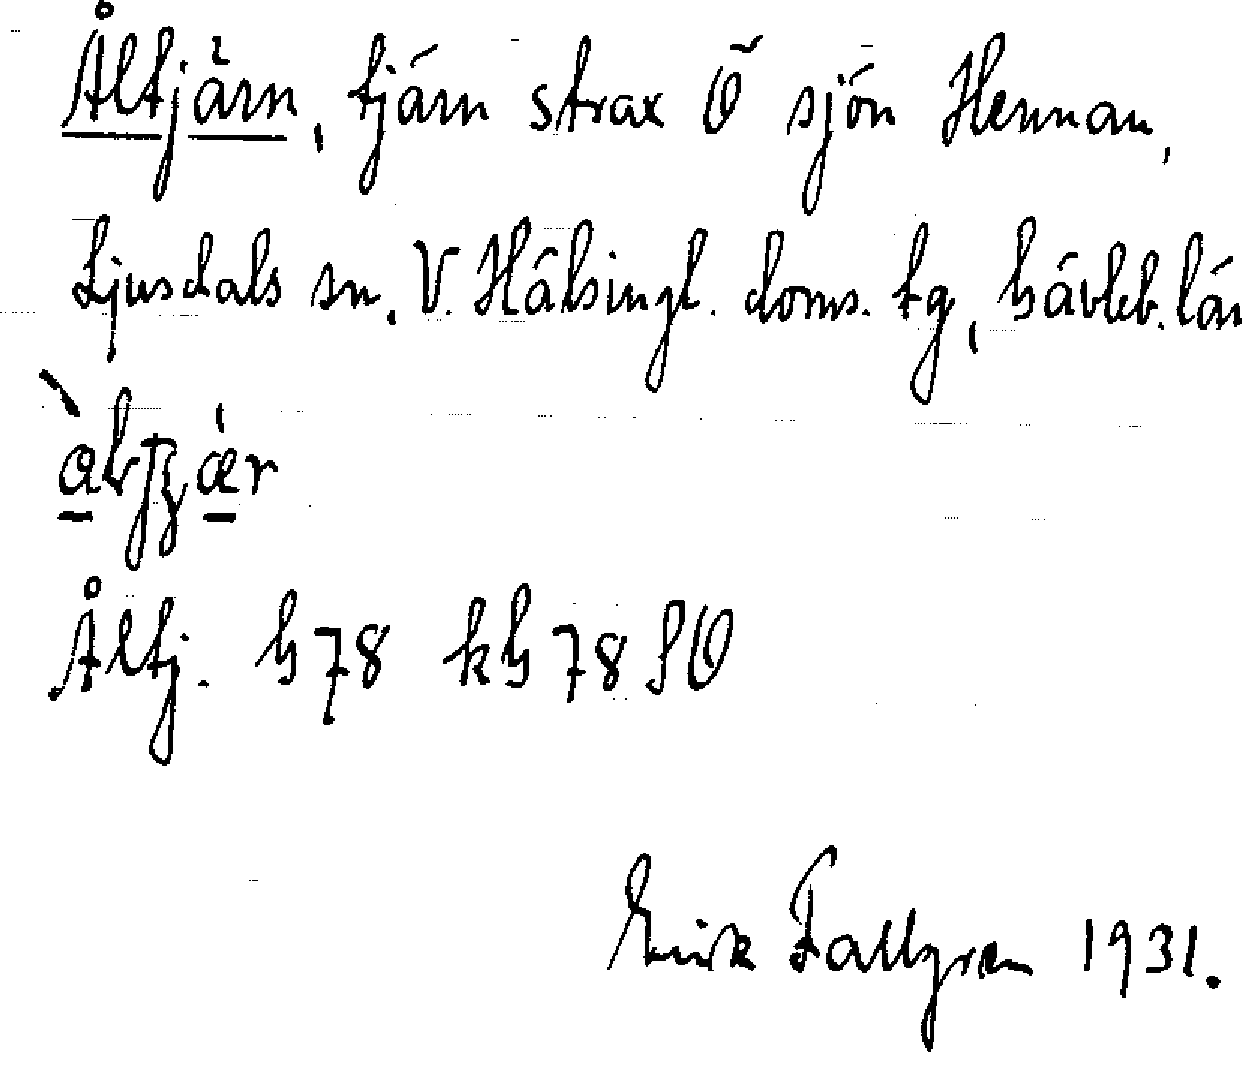 Åltjärn, tjärn strax Ö sjön Hennan,
Ljusdals sn. V. Hälsingl. doms. tg, Gävleb. län
Åltj. G78 kG78SO
Erik Fallgren 1931.